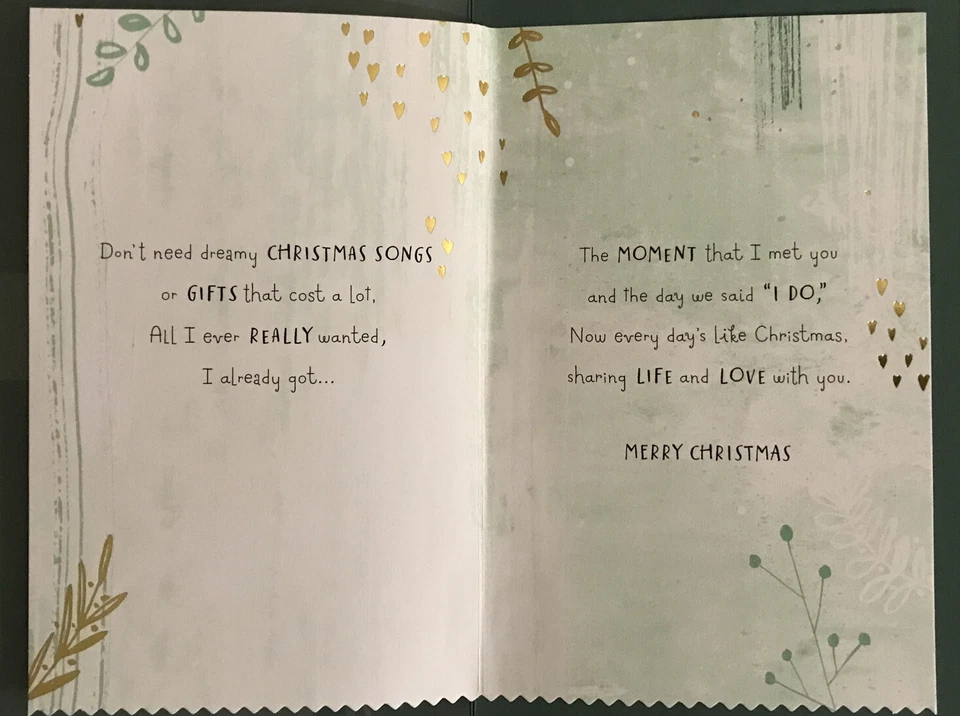 Don't need dreamy CHRISTMAS SONGS
or GIFTS that cost a lot,
All I ever REALLY wanted,
I already got...
The MOMENT that I met you
and the day we said “I DO,”
Now every day's like Christmas,
sharing LIFE and LOVE with you.
MERRY CHRISTMAS